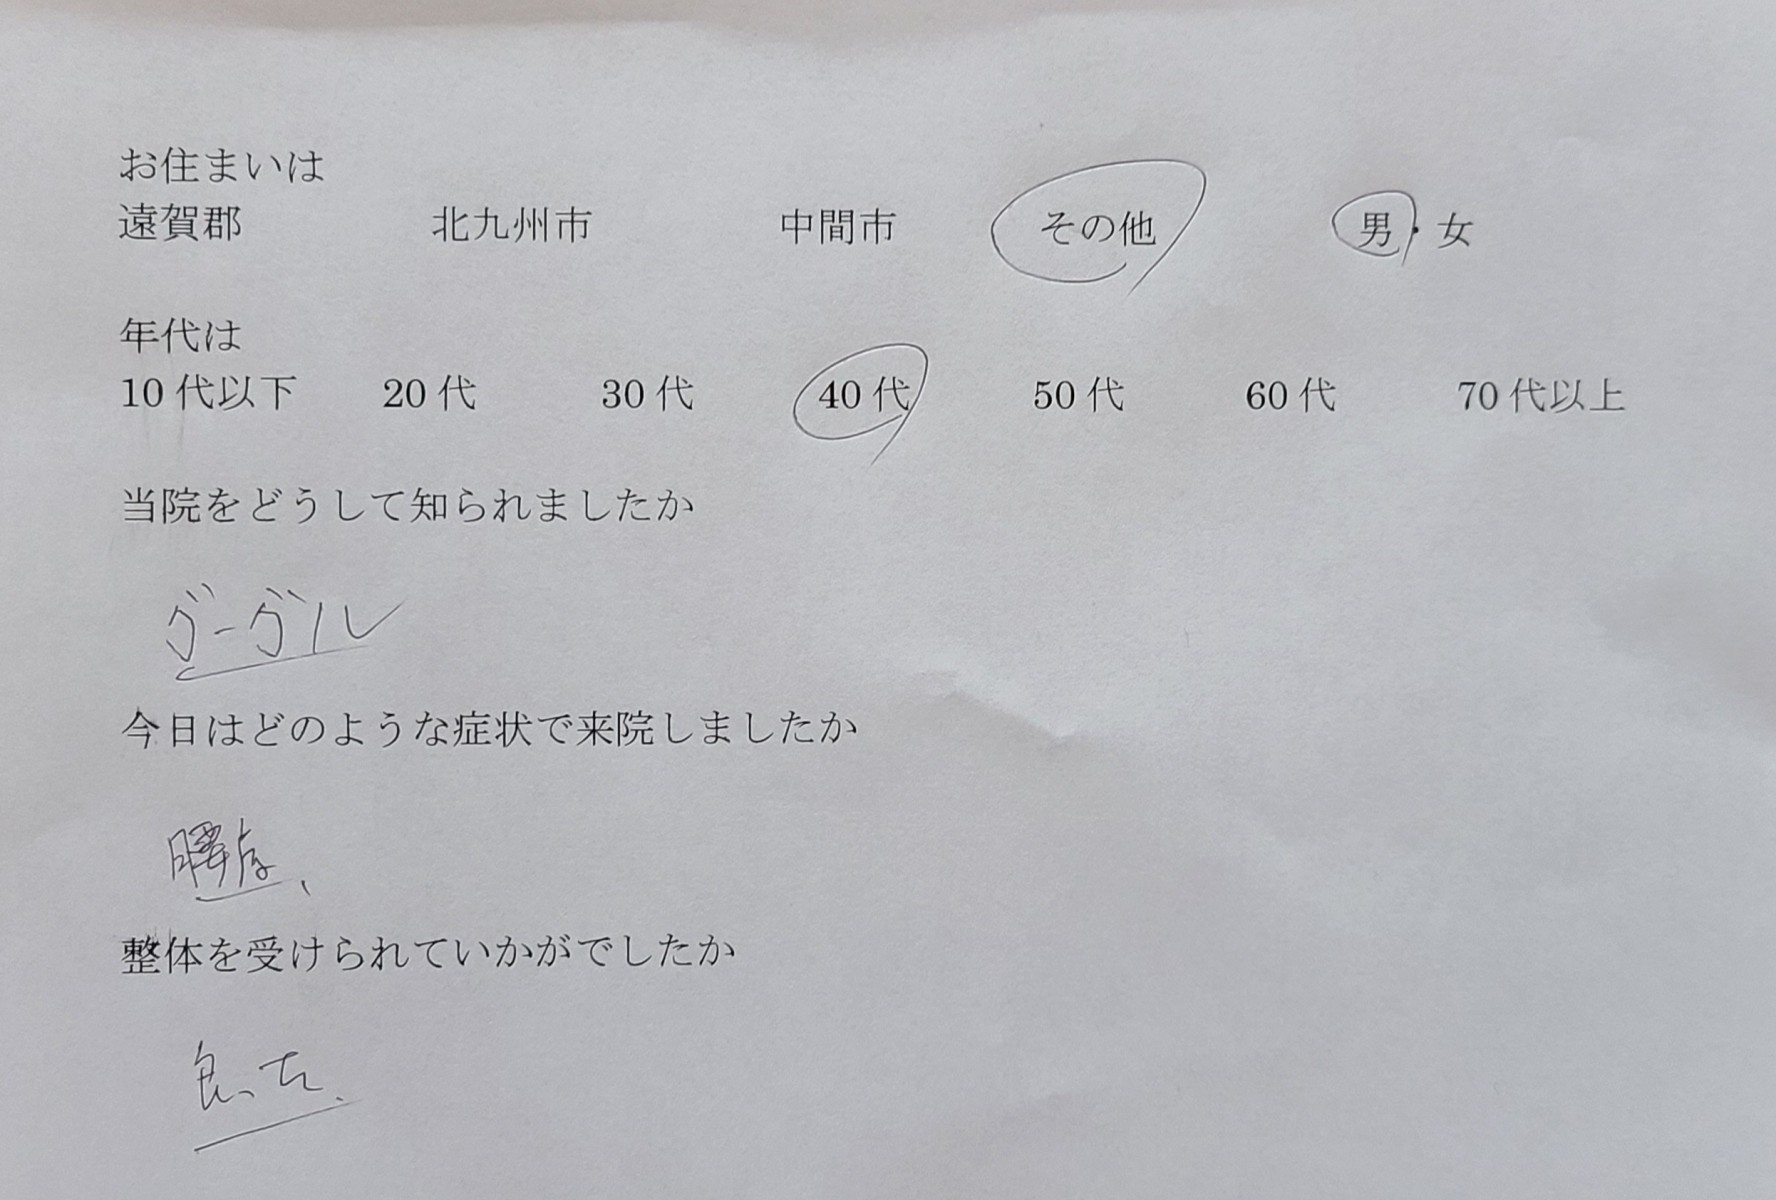 お住まいは
遠賀郡 北九州市 中間市 その他 男・女
年代は
10代以下 20代 30代 40代 50代 60代 70代以上
当院をどうして知られましたか
グーグル
今日はどのような症状で来院しましたか
腰痛、
整体を受けられていかがでしたか
良った.